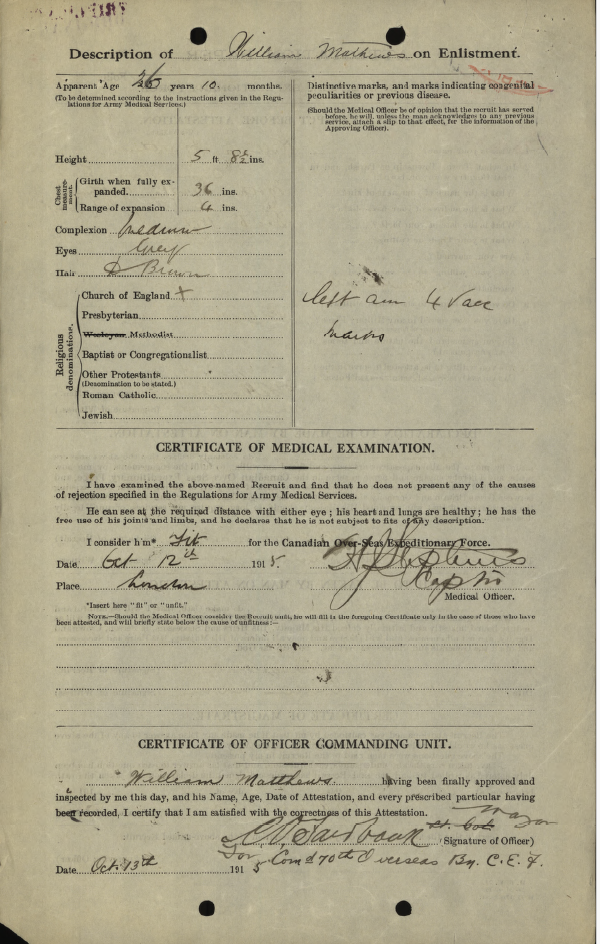 Description of William Mathews on Enlistment.
Apparent Age 26 years 10 months.
(To be determined according to the instructions given in the Regulations for Army Medical Services.)
Distinctive marks, and marks indicating congenital peculiarities or previous disease.
(Should the Medical Officer be of opinion that the recruit has served before, he will, unless the man acknowledges to any previous service, attach a slip to that effect, for the information of the Approving Officer).
Height 5 ft 8½ ins.
Chest measurement.
Girth when fully expanded. 36 ins.
Range of expansion 4 ins.
Complexion Medium
Eyes Grey
Hair D Brown
Religious denominations.
Church of England +
Presbyterian
Wesleyan Methodist
Baptist or Congregationalist
Other Protestants
(Denomination to be stated.)
Roman Catholic
Jewish
left arm 4 Vacc
marks
CERTIFICATE OF MEDICAL EXAMINATION.
I have examined the above-named Recruit and find that he does not present any of the causes
of rejection specified in the Regulations for Army Medical Services.
He can see at the required distance with either eye; his heart and lungs are healthy; he has the
free use of his joints and limbs, and he declares that he is not subject to fits of any description.
I consider him* Fit for the Canadian Over-Seas Expeditionary Force.
Date Oct 12th 1915
Place London
Capt
Medical Officer.
*Insert here "fit" or "unfit."
NOTE.—Should the Medical Officer consider the Recruit unfit, he will fill in the foregoing Certificate only in the case of those who have
been attested, and will briefly state below the cause of unfitness:—
CERTIFICATE OF OFFICER COMMANDING UNIT.
William Matthews having been finally approved and
inspected by me this day, and his Name, Age, Date of Attestation, and every prescribed particular having
been recorded, I certify that I am satisfied with the correctness of this Attestation.
Major
Lt. Col (Signature of Officer)
For Comd 70th Overseas Bn. C.E.F.
Date Oct. 13th 1915